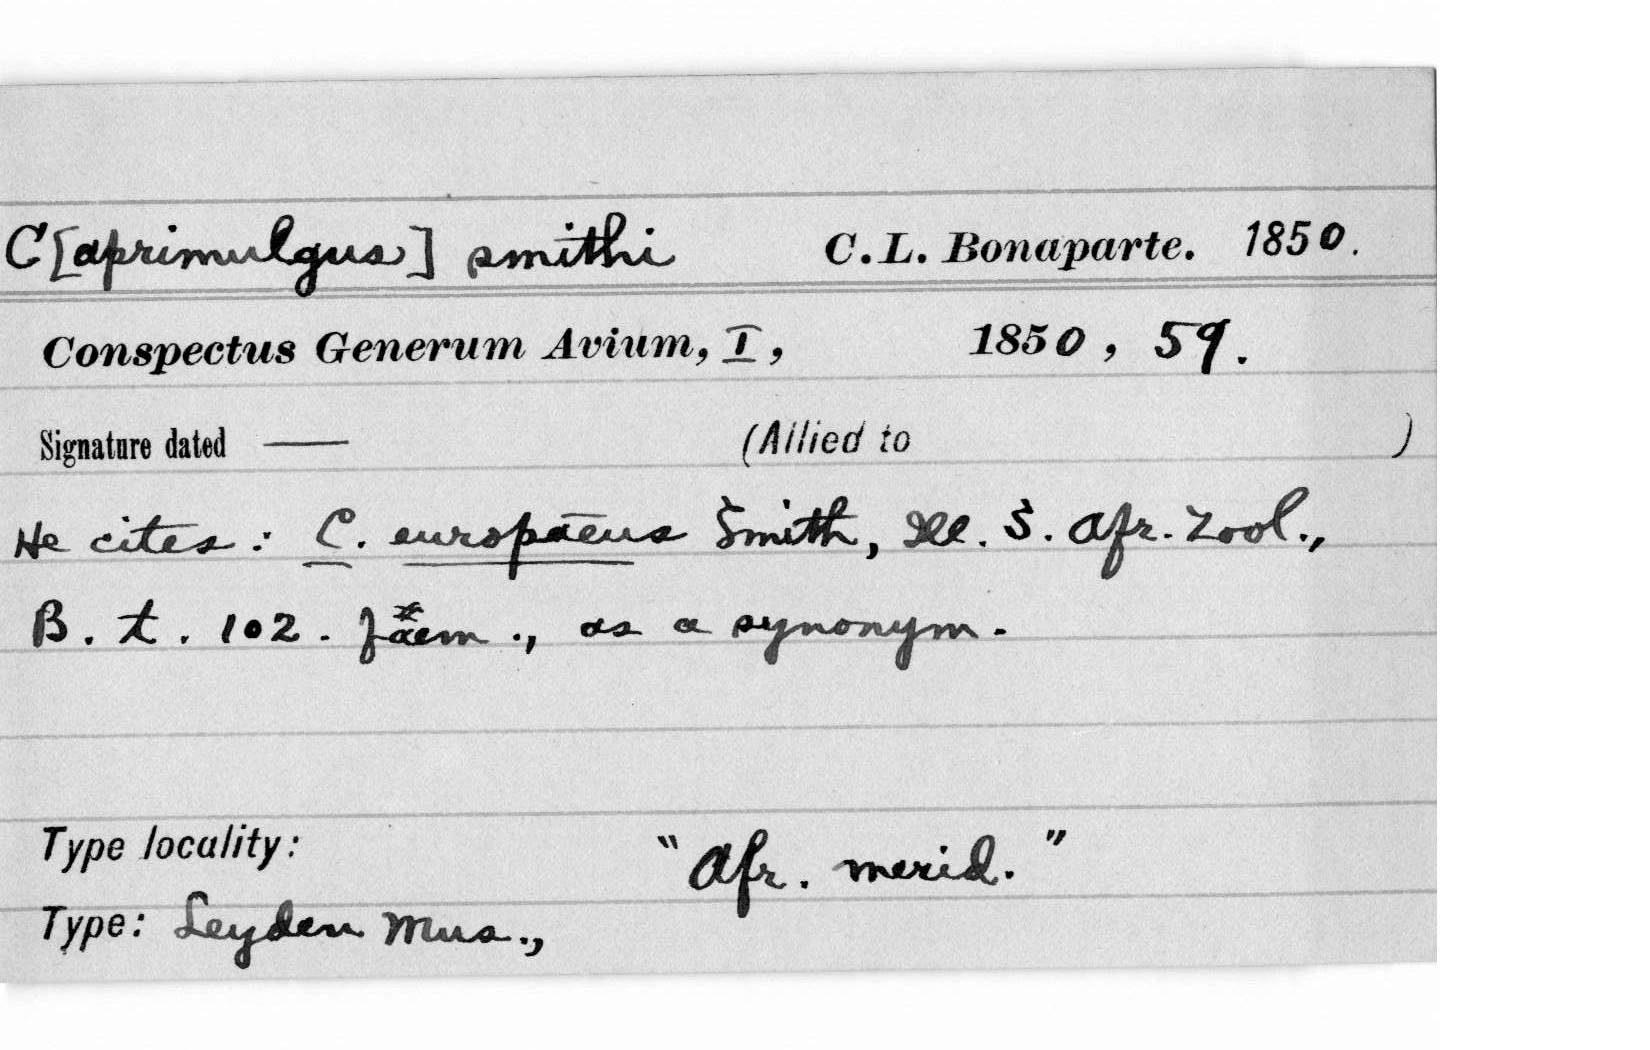 C[aprimulgus] smithi C. L. Bonaparte. 1850.
Conspectus Generum Avium, I, 1850, 59.
Signature dated — (Allied to )
He cites: C. europaeus Smith, Ill. S. Afr. Zool.,
B. t. 102. faem., as a synonym.
Type locality: "Afr. merid."
Type: Leyden Mus.,